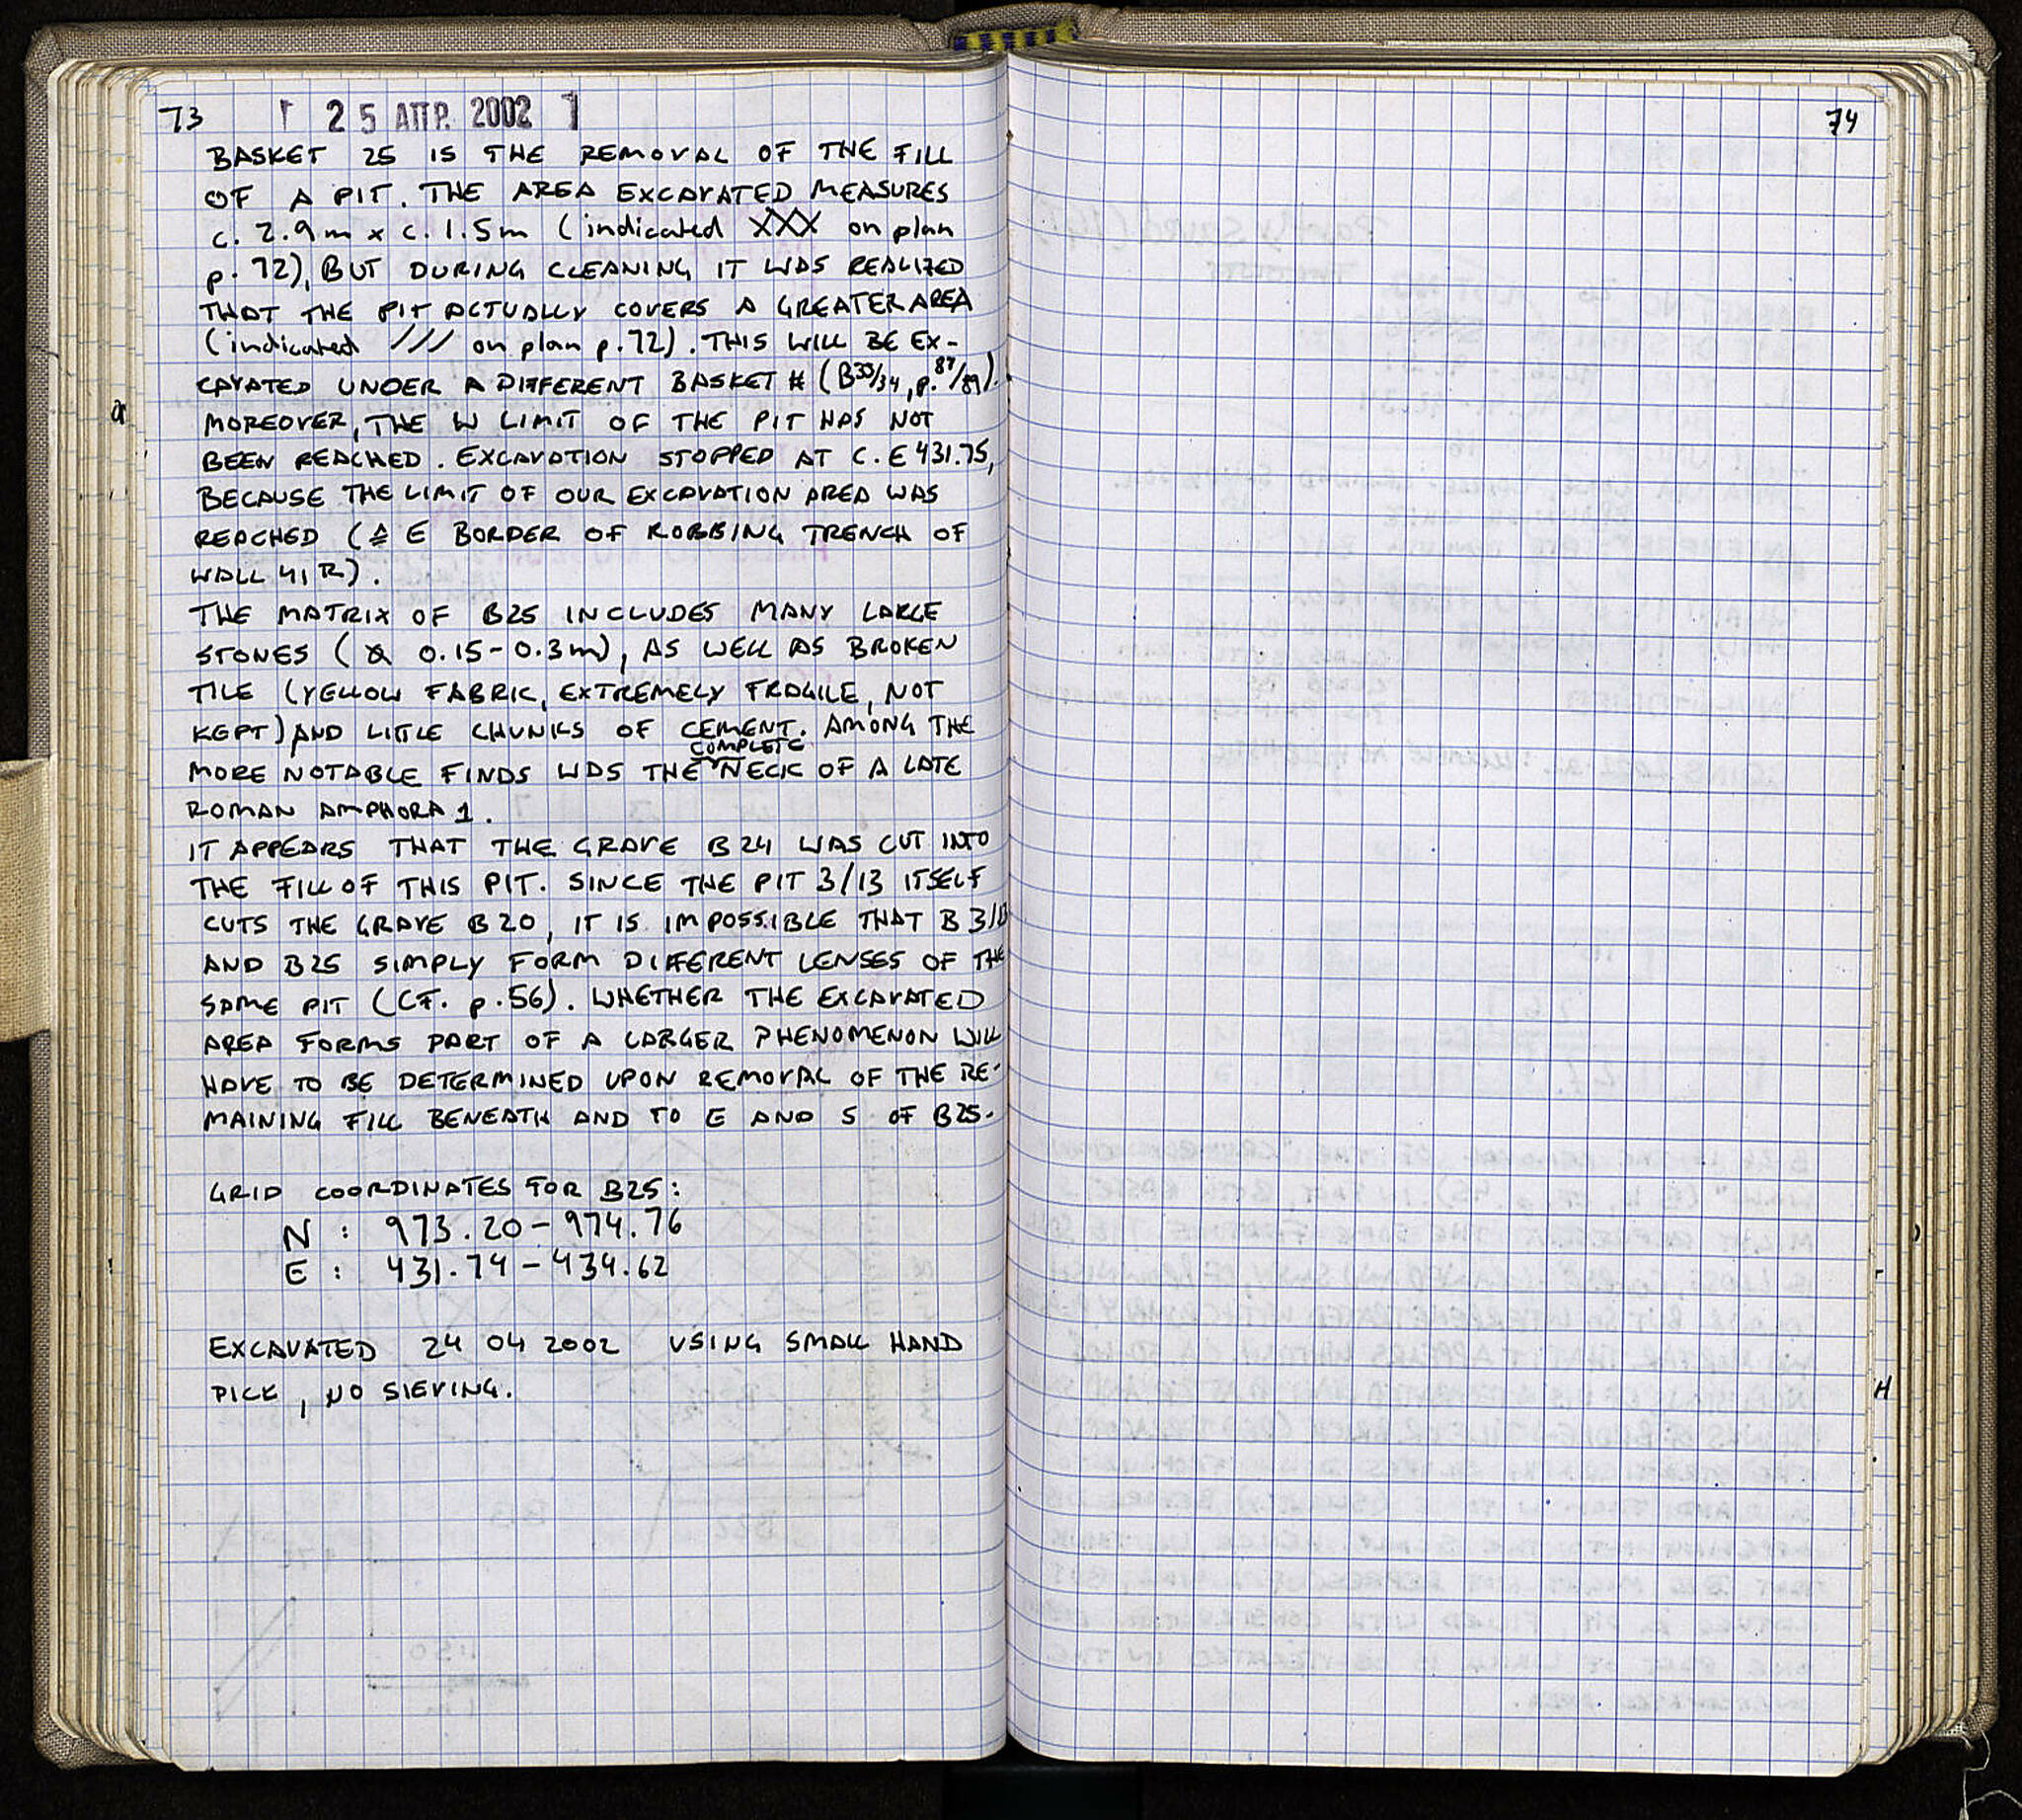 73
25 ΑΠΡ. 2002
BASKET 25 IS THE REMOVAL OF THE FILL
OF A PIT. THE AREA EXCAVATED MEASURES
c. 2.9m x c. 1.5m (indicated XXX on plan
p. 72), BUT DURING CLEANING IT WAS REALIZED
THAT THE PIT ACTUALLY COVERS A GREATER AREA
(indicated /// on plan p. 72). THIS WILL BE EX-
CAVATED UNDER A DIFFERENT BASKET # (B33/34, p. 87/89).
MOREOVER, THE W LIMIT OF THE PIT HAS NOT
BEEN REACHED. EXCAVATION STOPPED AT C. E 431.75,
BECAUSE THE LIMIT OF OUR EXCAVATION AREA WAS
REACHED (≙ E BORDER OF ROBBING TRENCH OF
WALL 41 R).
THE MATRIX OF B25 INCLUDES MANY LARGE
STONES (⌀ 0.15-0.3m), AS WELL AS BROKEN
TILE (YELLOW FABRIC, EXTREMELY FRAGILE, NOT
KEPT) AND LITTLE CHUNKS OF CEMENT. AMONG THE
MORE NOTABLE FINDS WAS THE COMPLETE NECK OF A LATE
ROMAN AMPHORA 1.
IT APPEARS THAT THE GRAVE B24 WAS CUT INTO
THE FILL OF THIS PIT. SINCE THE PIT 3/13 ITSELF
CUTS THE GRAVE B20, IT IS IMPOSSIBLE THAT B 3/13
AND B25 SIMPLY FORM DIFFERENT LENSES OF THE
SAME PIT (CF. p. 56). WHETHER THE EXCAVATED
AREA FORMS PART OF A LARGER PHENOMENON WILL
HAVE TO BE DETERMINED UPON REMOVAL OF THE RE-
MAINING FILL BENEATH AND TO E AND S OF B25.
GRID COORDINATES FOR B25:
N : 973.20-974.76
E : 431.74-434.62
EXCAVATED 24 04 2002 USING SMALL HAND
PICK, NO SIEVING.
74